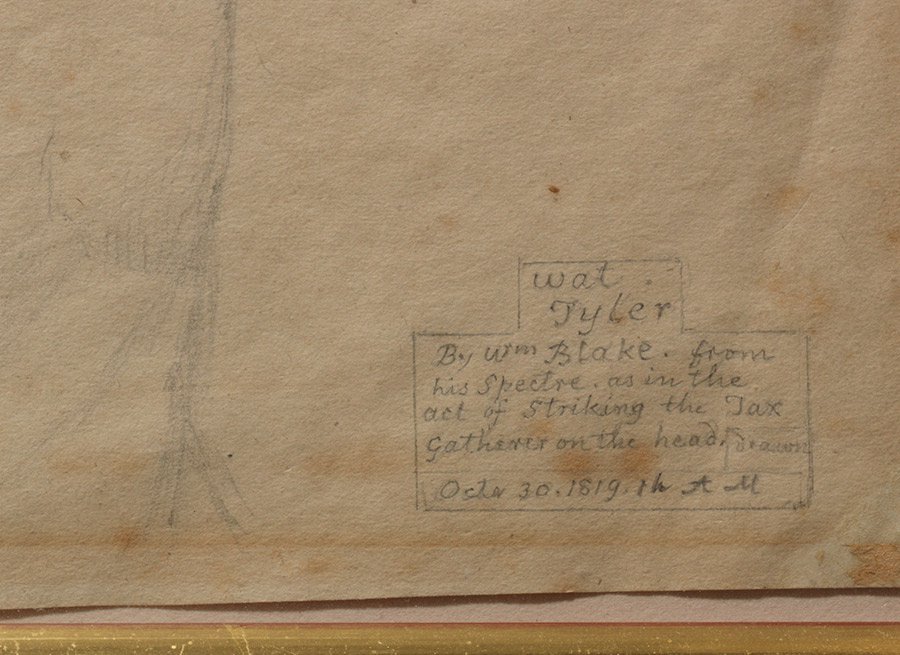 wat
Tyler
By Wm Blake. from
his Spectre. as in the
act of Striking the Tax
Gatherer on the head. drawn
Octr 30. 1819. 1h A M